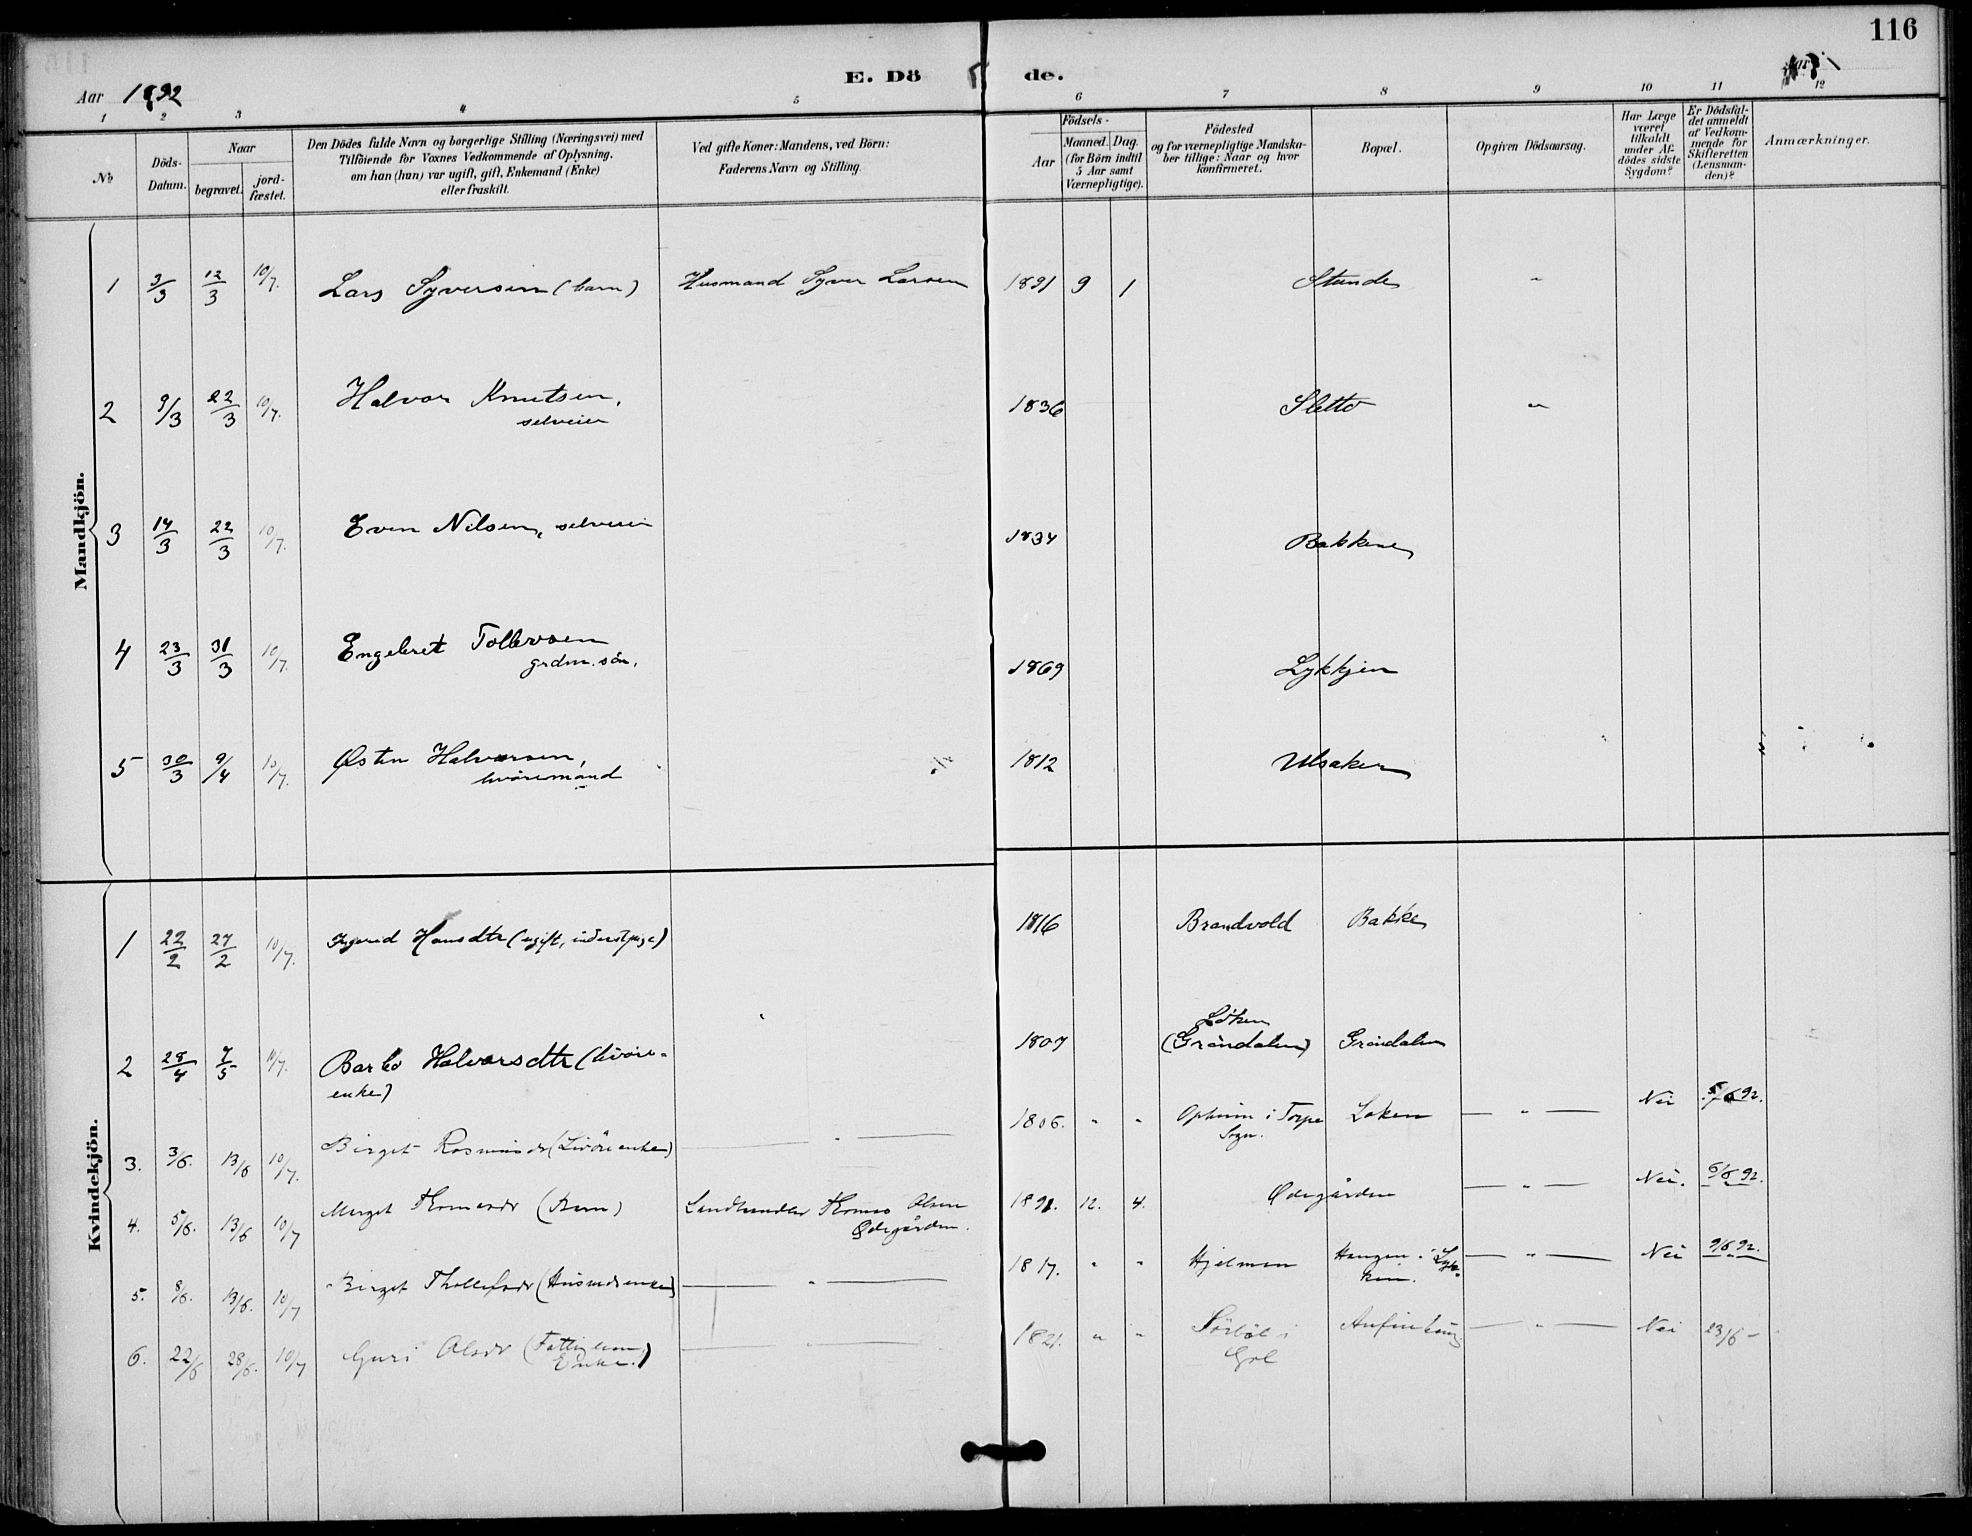 116
E. Dö de.
Aar 1892
1 2 3 4 5 6 7 8 9 10 11 12
No
Döds-Datum.
Naar
begravet.
jord-fæstet.
Den Dödes fulde Navn og borgerlige Stilling (Næringsvei) med
Tilföiende for Voxnes Vedkommende af Oplysning,
om han (hun) var ugift, gift, Enkemand (Enke)
eller fraskilt.
Ved gifte Koner: Mandens, ved Börn:
Faderens Navn og Stilling.
Födsels-
Aar
Maaned. Dag.
(for Börn indtil
5 Aar samt
Værnepligtige).
Födested
og for værnepligtige Mandska-
ber tillige: Naar og hvor
konfirmeret.
Bopæl.
Opgiven Dödsaarsag.
Har Læge
været
tilkaldt
under Af-
dödes sidste
Sygdom?
Er Dödsfal-
det anmeldt
af Vedkom-
mende for
Skifteretten
(Lensman-
den)?
Anmærkninger.
Mandkjön.
1 3/3 12/3 10/7. Lars Syversen (barn) Husmand Syver Larsen 1891 9 1 Stunde "
2 9/3 22/3 10/7. Halvor Knutsen, 1836 Sletto "
selveier
3 14/3 22/3 10/7. Even Nilsen, selveier 1834 Bakkene
4 23/3 31/3 10/7. Engebret Tollevsen 1869 Lykkjen
grdm. sön.
5 30/3 9/4 10/7. Østen Halvorsen, 1812 Ulsaker
livöremand
Kvindekjön.
1 22/2 27/2 10/7. Ingerid Hansdtr (ugift, inderstpige) 1816 Brandvold Bakke
2 28/4 7/5 10/7. Barbo Halvorsdtr (livöre- 1807 Löken
(Gröndalen) Gröndalen
enke)
3. 3/6. 13/6 10/7. Birget (Livöreenke) " 1806. " " i Torpe Løken " Nei 5/6 92.
Sogn.
4. 5/6. 13/6 10/7 Merget Thomasdr (Barn) Landhandler Thomas Olsen 1891. 12. 4. Ødegården " Nei. 6/6 92.
Ødegården.
5. 8/6. 13/6. 10/7 Birget Thollefsdr (Husmdsenke) " 1817. " " Hjelmen Haugen i Lyk- " Nei 9/6 92.
6. 22/6 28/6. 10/7 Guri Olsdr (Fattiglem, 1821. " " i " Nei 23/6 -
Enke.)
Gol